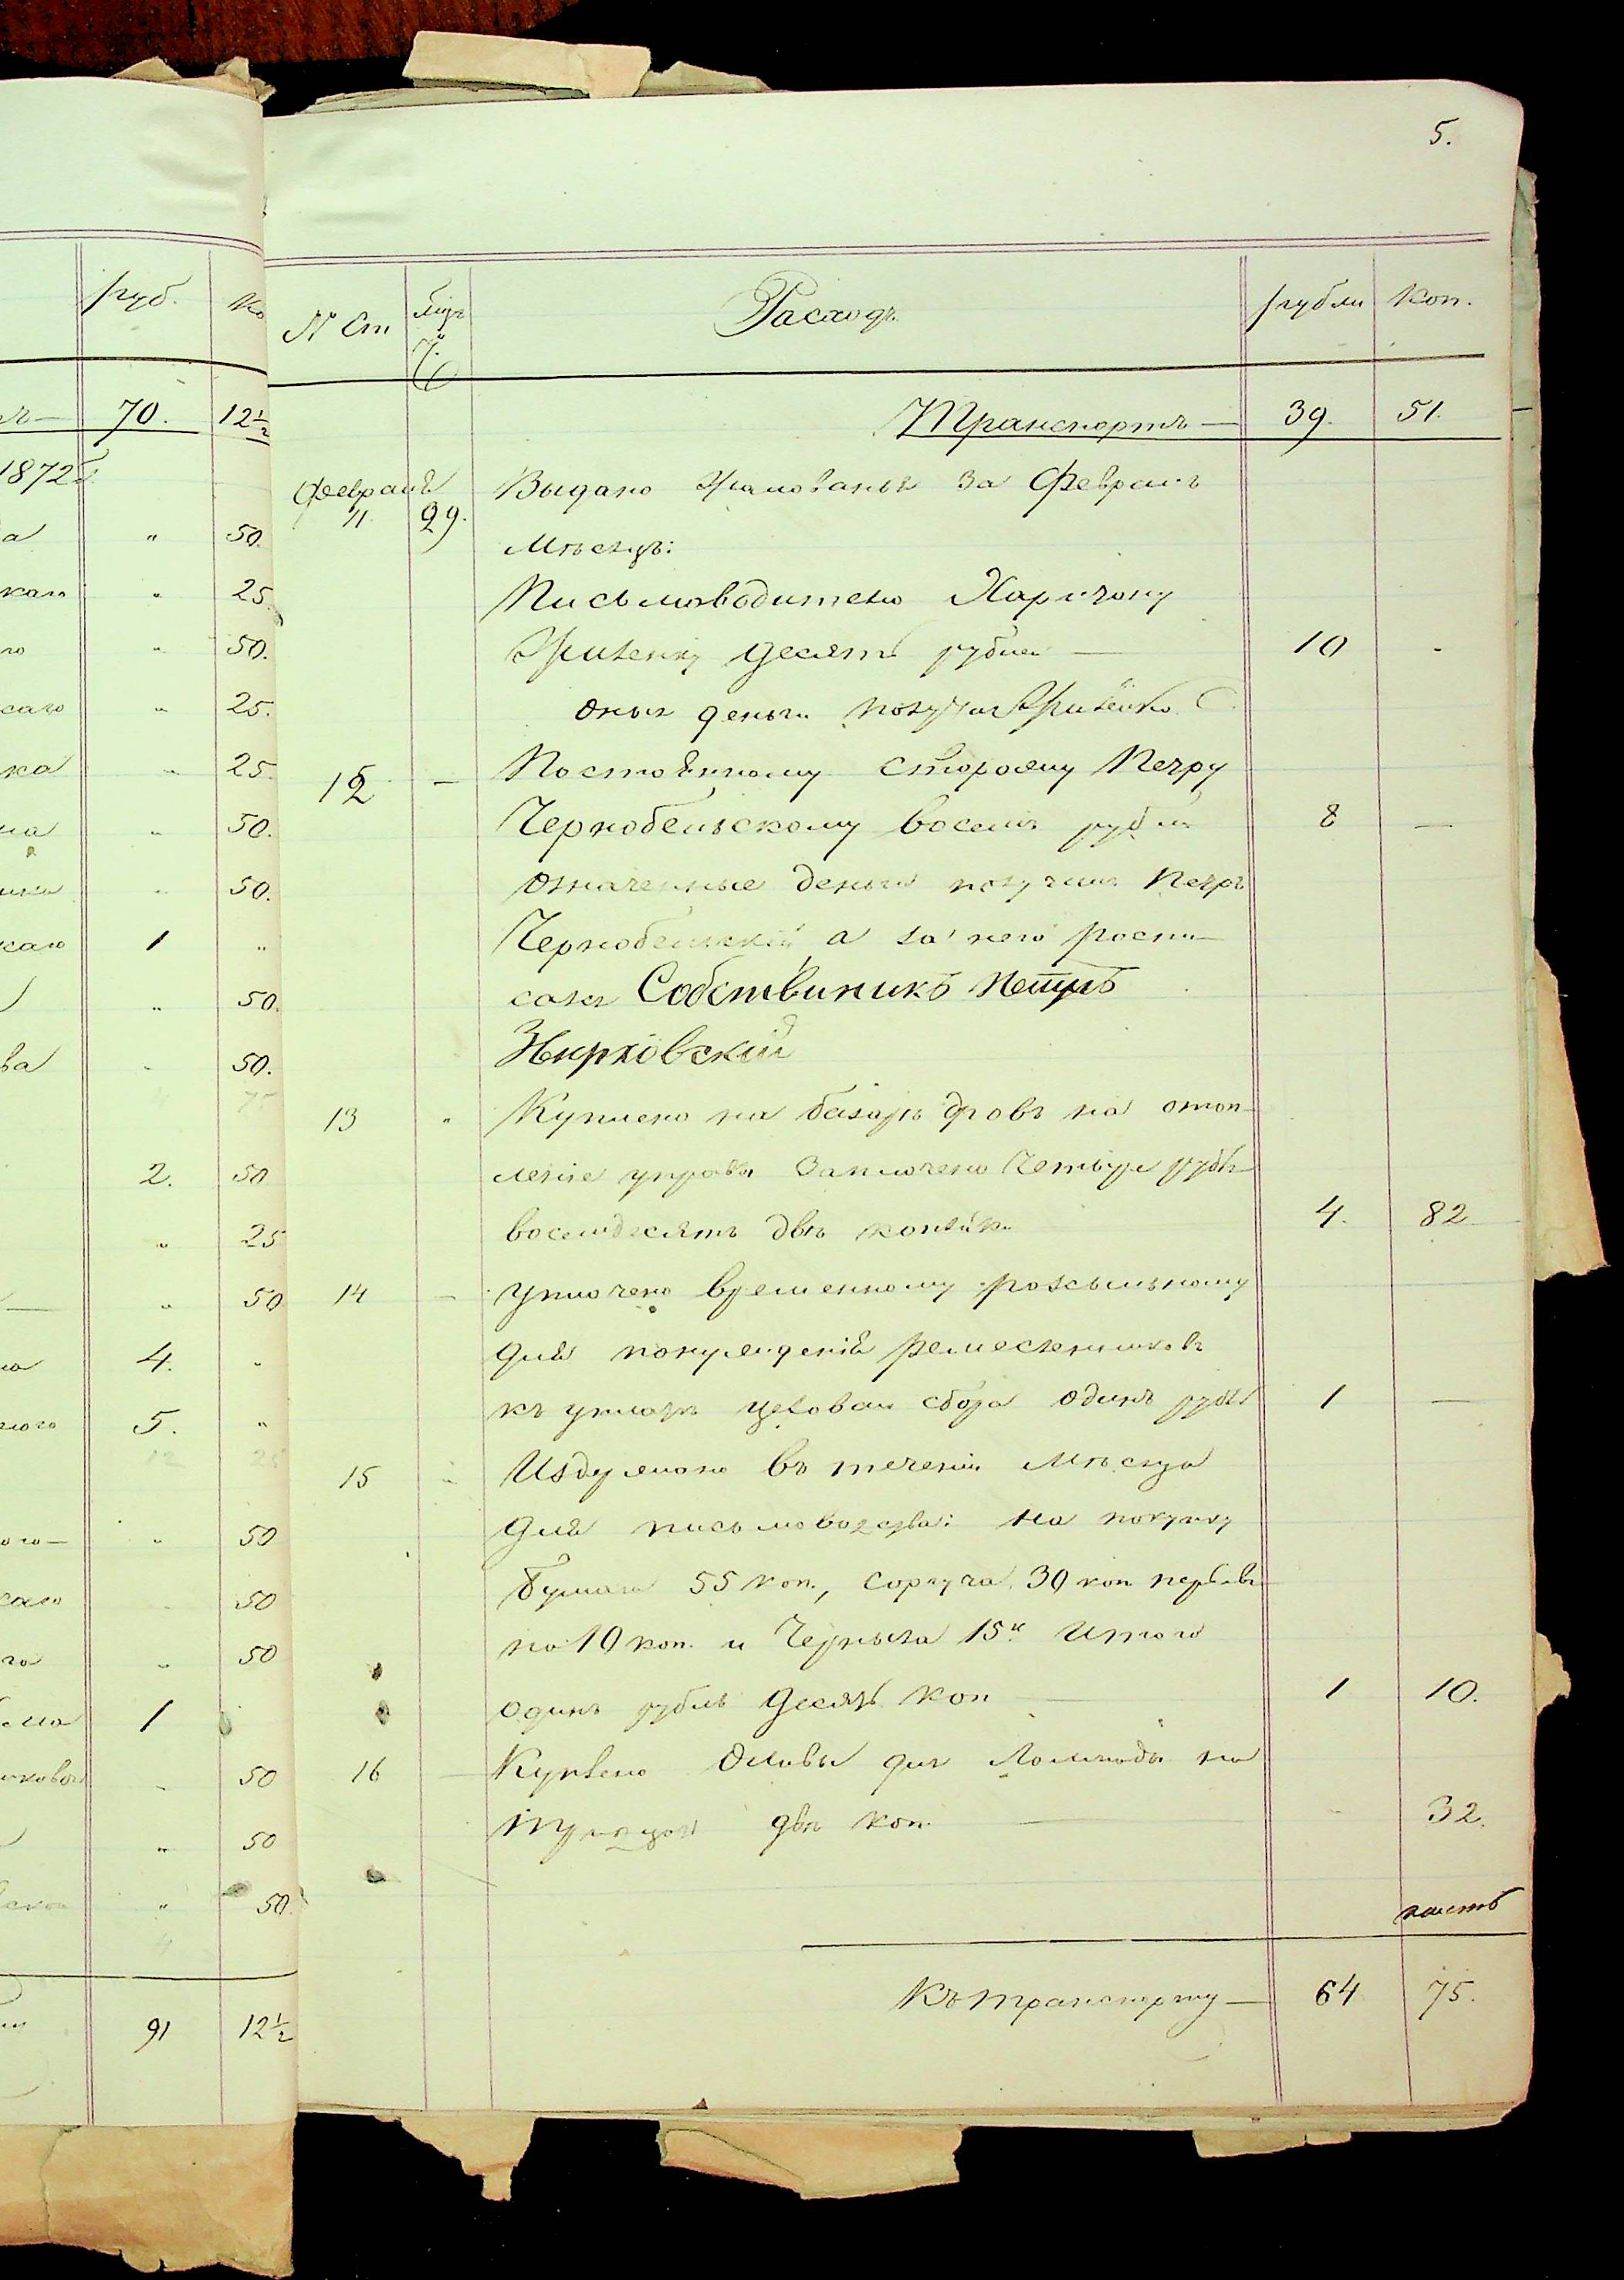 5.
руб. Ко
70. 12½
1872
а " 50.
" 25.
го " 50.
" 25.
ка " 25.
на " 50.
" 50.
1 "
" 50.
ва " 50.
2. 50
" 25
" 50
4. "
5. "
" 50
50
50
1
50
" 50
" 50.
91 12½
№ Ст Расходъ рубли Коп.
Транспортъ — 39. 51.
Февраля Выдано Жалованья за Февраль
11. 29. Мѣсяцъ:
Письмоводителю Харитону
десять рублей — 10 -
оныя деньги получилъ
12 — Постоянному сторожу Петру
Чернобельскому восемь рубли 8 —
означенные деньги получилъ Петръ
Чернобельскій, а за него роспи-
салъ Собствиникъ Петръ
13 " Куплено на базарѣ дровъ на отоп-
леніе управы Заплочено Четыри рубля
восемдесять двѣ копѣйки 4. 82
14 — Уплочено временному розсыльному
для понужденія ремесленниковъ
къ уплатѣ цеховаго сбора одинъ рубль 1 —
15 " Издержано въ теченіи Мѣсяца
для письмоводства: на покупку
бумаги 55 коп., Соргуча 30 коп
на 10 коп. и Чернила 15к. Итого
одинъ рубль десять коп — 1 10.
16 — Куплено Оливы для Лампады на
тридцать двѣ коп. — 32.
Къ транспорту — 64 75.